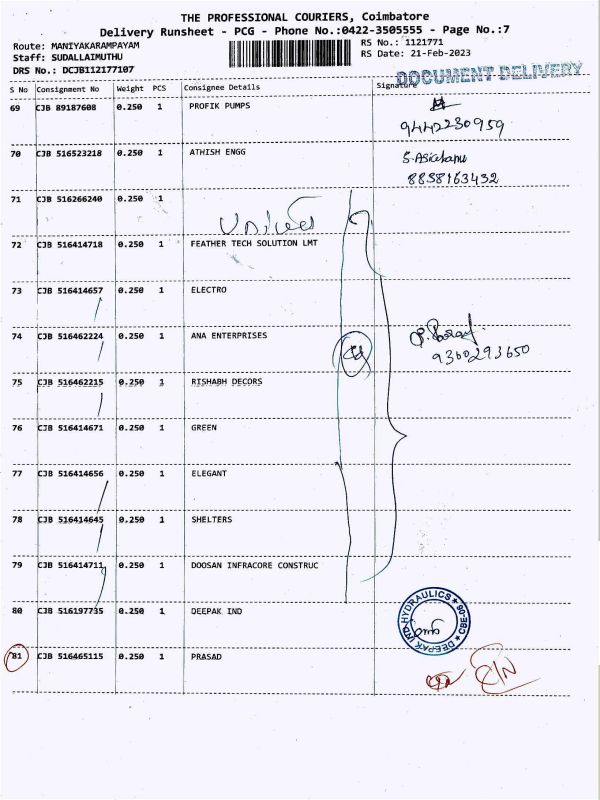 THE PROFESSIONAL COURIERS, Coimbatore
Delivery Runsheet - PCG - Phone No.:0422-3505555 - Page No.:7
Route: MANIYAKARAMPAYAM
RS No.: 1121771
Staff: SUDALLAIMUTHU
RS Date: 21-Feb-2023
DRS No.: DCJB112177107
DOCUMENT DELIVERY
S No Consignment No Weight PCS Consignee Details Signature
69 CJB 89187608 0.250 1 PROFIK PUMPS
9442230959
70 CJB 516523218 0.250 1 ATHISH ENGG
8838163432
71 CJB 516266240 0.250 1
72 CJB 516414718 0.250 1 FEATHER TECH SOLUTION LMT
73 CJB 516414657 0.250 1 ELECTRO
74 CJB 516462224 0.250 1 ANA ENTERPRISES
9360293650
75 CJB 516462215 0.250 1 RISHABH DECORS
76 CJB 516414671 0.250 1 GREEN
77 CJB 516414656 0.250 1 ELEGANT
78 CJB 516414645 0.250 1 SHELTERS
79 CJB 516414711 0.250 1 DOOSAN INFRACORE CONSTRUC
80 CJB 516197735 0.250 1 DEEPAK IND
DEEPAK IND HYDRAULICS ★ CBE-06 ★
81 CJB 516465115 0.250 1 PRASAD